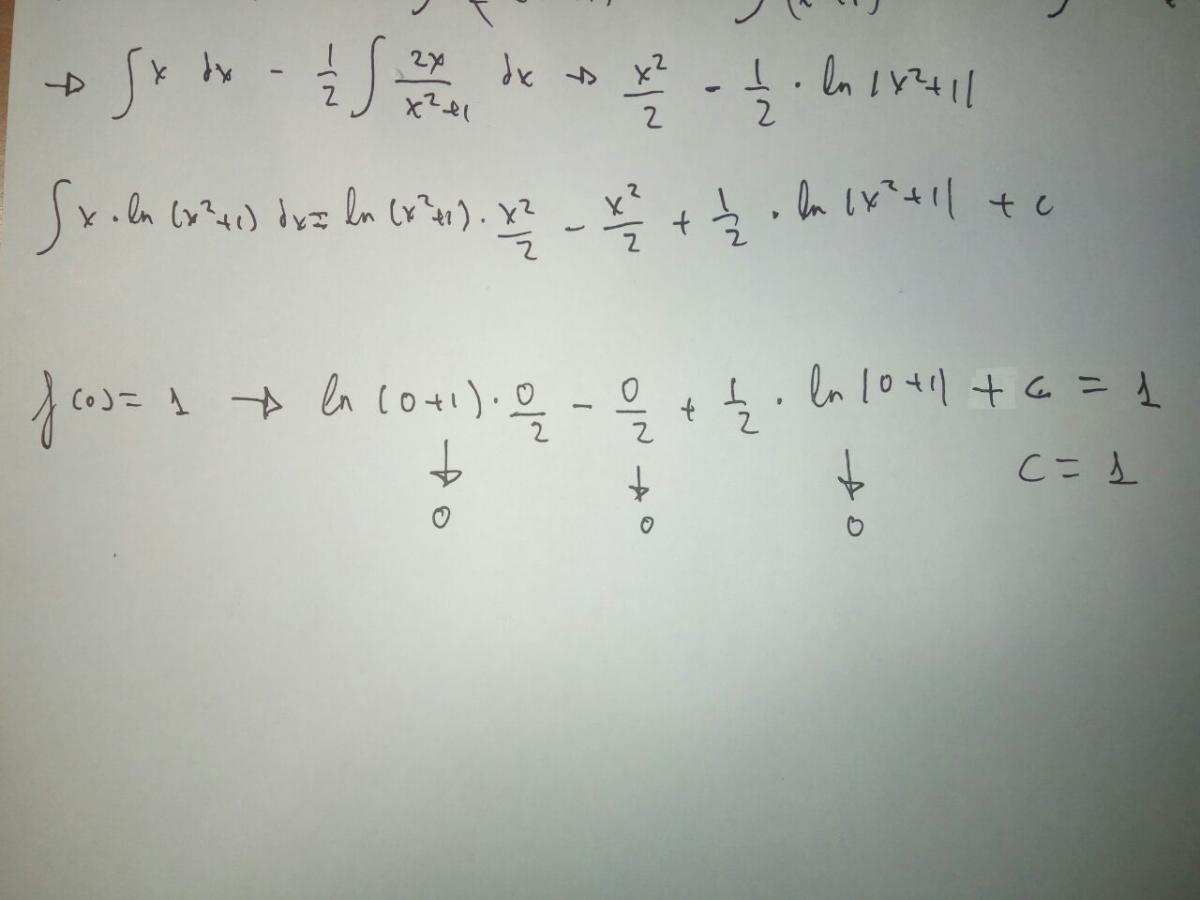 → ∫ x dx - 1/2 ∫ 2x/(x²+1) dx → x²/2 - 1/2 · ln |x²+1|
∫ x · ln (x²+1) dx = ln (x²+1) · x²/2 - x²/2 + 1/2 · ln |x²+1| + c
f(0) = 1 → ln (0+1) · 0/2 - 0/2 + 1/2 · ln |0+1| + c = 1
↓ ↓ ↓ C = 1
0 0 0